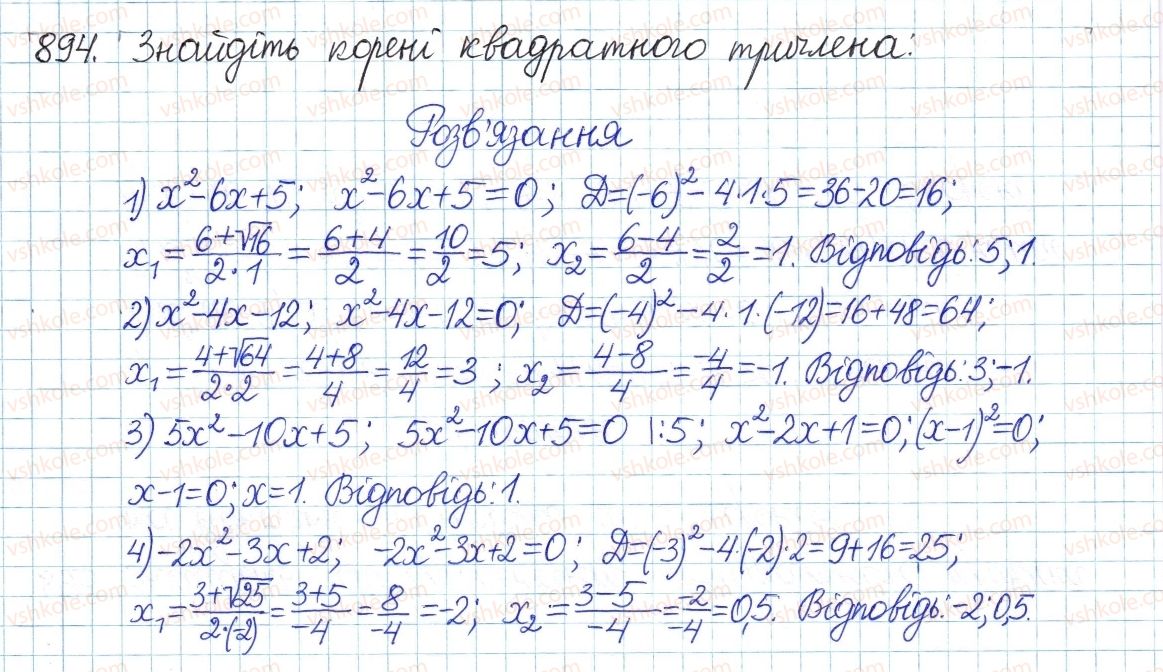 894. Знайдіть корені квадратного тричлена:
Розв'язання
1) x²-6x+5; x²-6x+5=0; D=(-6)²-4·1·5=36-20=16;
x₁=(6+√16)/(2·1)=(6+4)/2=10/2=5; x₂=(6-4)/2=2/2=1. Відповідь: 5; 1.
2) x²-4x-12; x²-4x-12=0; D=(-4)²-4·1·(-12)=16+48=64;
x₁=(4+√64)/(2·2)=(4+8)/4=12/4=3; x₂=(4-8)/4=-4/4=-1. Відповідь: 3; -1.
3) 5x²-10x+5; 5x²-10x+5=0 |:5; x²-2x+1=0; (x-1)²=0;
x-1=0; x=1. Відповідь: 1.
4) -2x²-3x+2; -2x²-3x+2=0; D=(-3)²-4·(-2)·2=9+16=25;
x₁=(3+√25)/(2·(-2))=(3+5)/-4=8/-4=-2; x₂=(3-5)/-4=-2/-4=0,5. Відповідь: -2; 0,5.